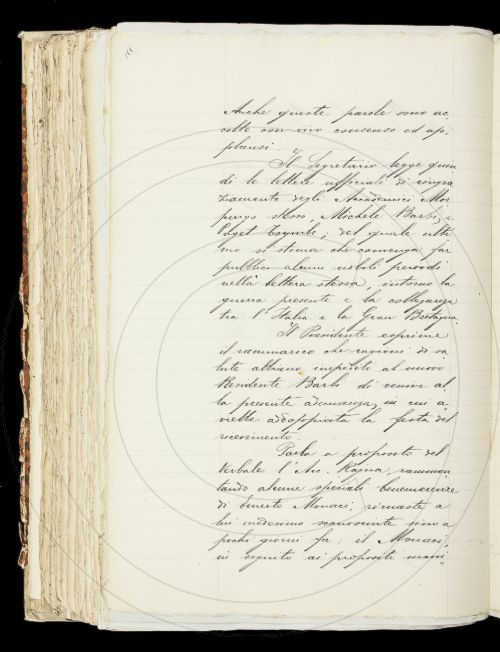 Anche queste parole sono ac
colte con vivo consenso ed ap-
plausi.
Il Segretario legge quin
di le lettere ufficiali di ringra
ziamento degli Accademici Mor
purgo stesso, Michele Barbi, e
Paget Toynbee; del quale ulti
mo si stima che convenga far
pubblici alcuni nobili periodi
nella lettera stessa, intorno la
guerra presente e la colleganza
tra l'Italia e la Gran Bretagna.
Il Presidente esprime
il rammarico che ragioni di sa
lute abbiano impedito al nuovo
Residente Barbi di venire al
la presente adunanza, in cui a
vrebbe addoppiata la festa del
ricevimento.
Parla a proposito del
Verbale l'Acc. Rajna, rammen
tando alcune speciali benemerenze
di Ernesto Monaci, rimaste a
lui medesimo sconosciute sino a
pochi giorni fa: il Monaci,
in seguito ai propositi mani